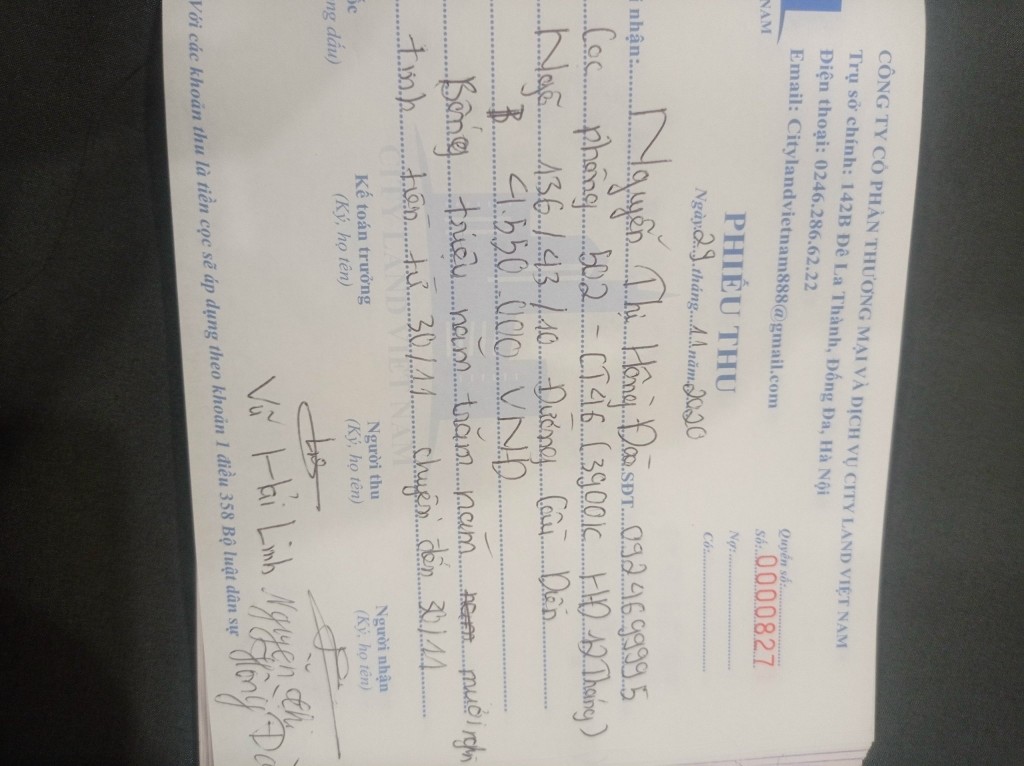 CÔNG TY CỔ PHẦN THƯƠNG MẠI VÀ DỊCH VỤ CITY LAND VIỆT NAM
Trụ sở chính: 142B Đê La Thành, Đống Đa, Hà Nội
Điện thoại: 0246.286.62.22
Email: Citylandvietnam888@gmail.com
NAM
Quyển số:
Số: 0000827
Nợ:
Có:
PHIẾU THU
Ngày 29 tháng 11 năm 2020
nhận: Nguyễn Thị Hồng Đào SĐT 0924699995
Cọc phòng 502 - CT46 (3900k HĐ 12 Tháng)
Ngõ 136/43/10 Đường Cầu Diễn
4.550.000 VNĐ
Bống triệu năm trăm năm mươi nghì
tính tiền từ 30/11 chuyển đến 30/11
ốc
ng dấu)
Kế toán trưởng
(Ký, họ tên)
Người thu
(Ký, họ tên)
Người nhận
(Ký, họ tên)
CITY LAND VIỆT NAM
Vũ Hải Linh
Nguyễn Thị
Hồng Đà
Với các khoản thu là tiền cọc sẽ áp dụng theo khoản 1 điều 358 Bộ luật dân sự